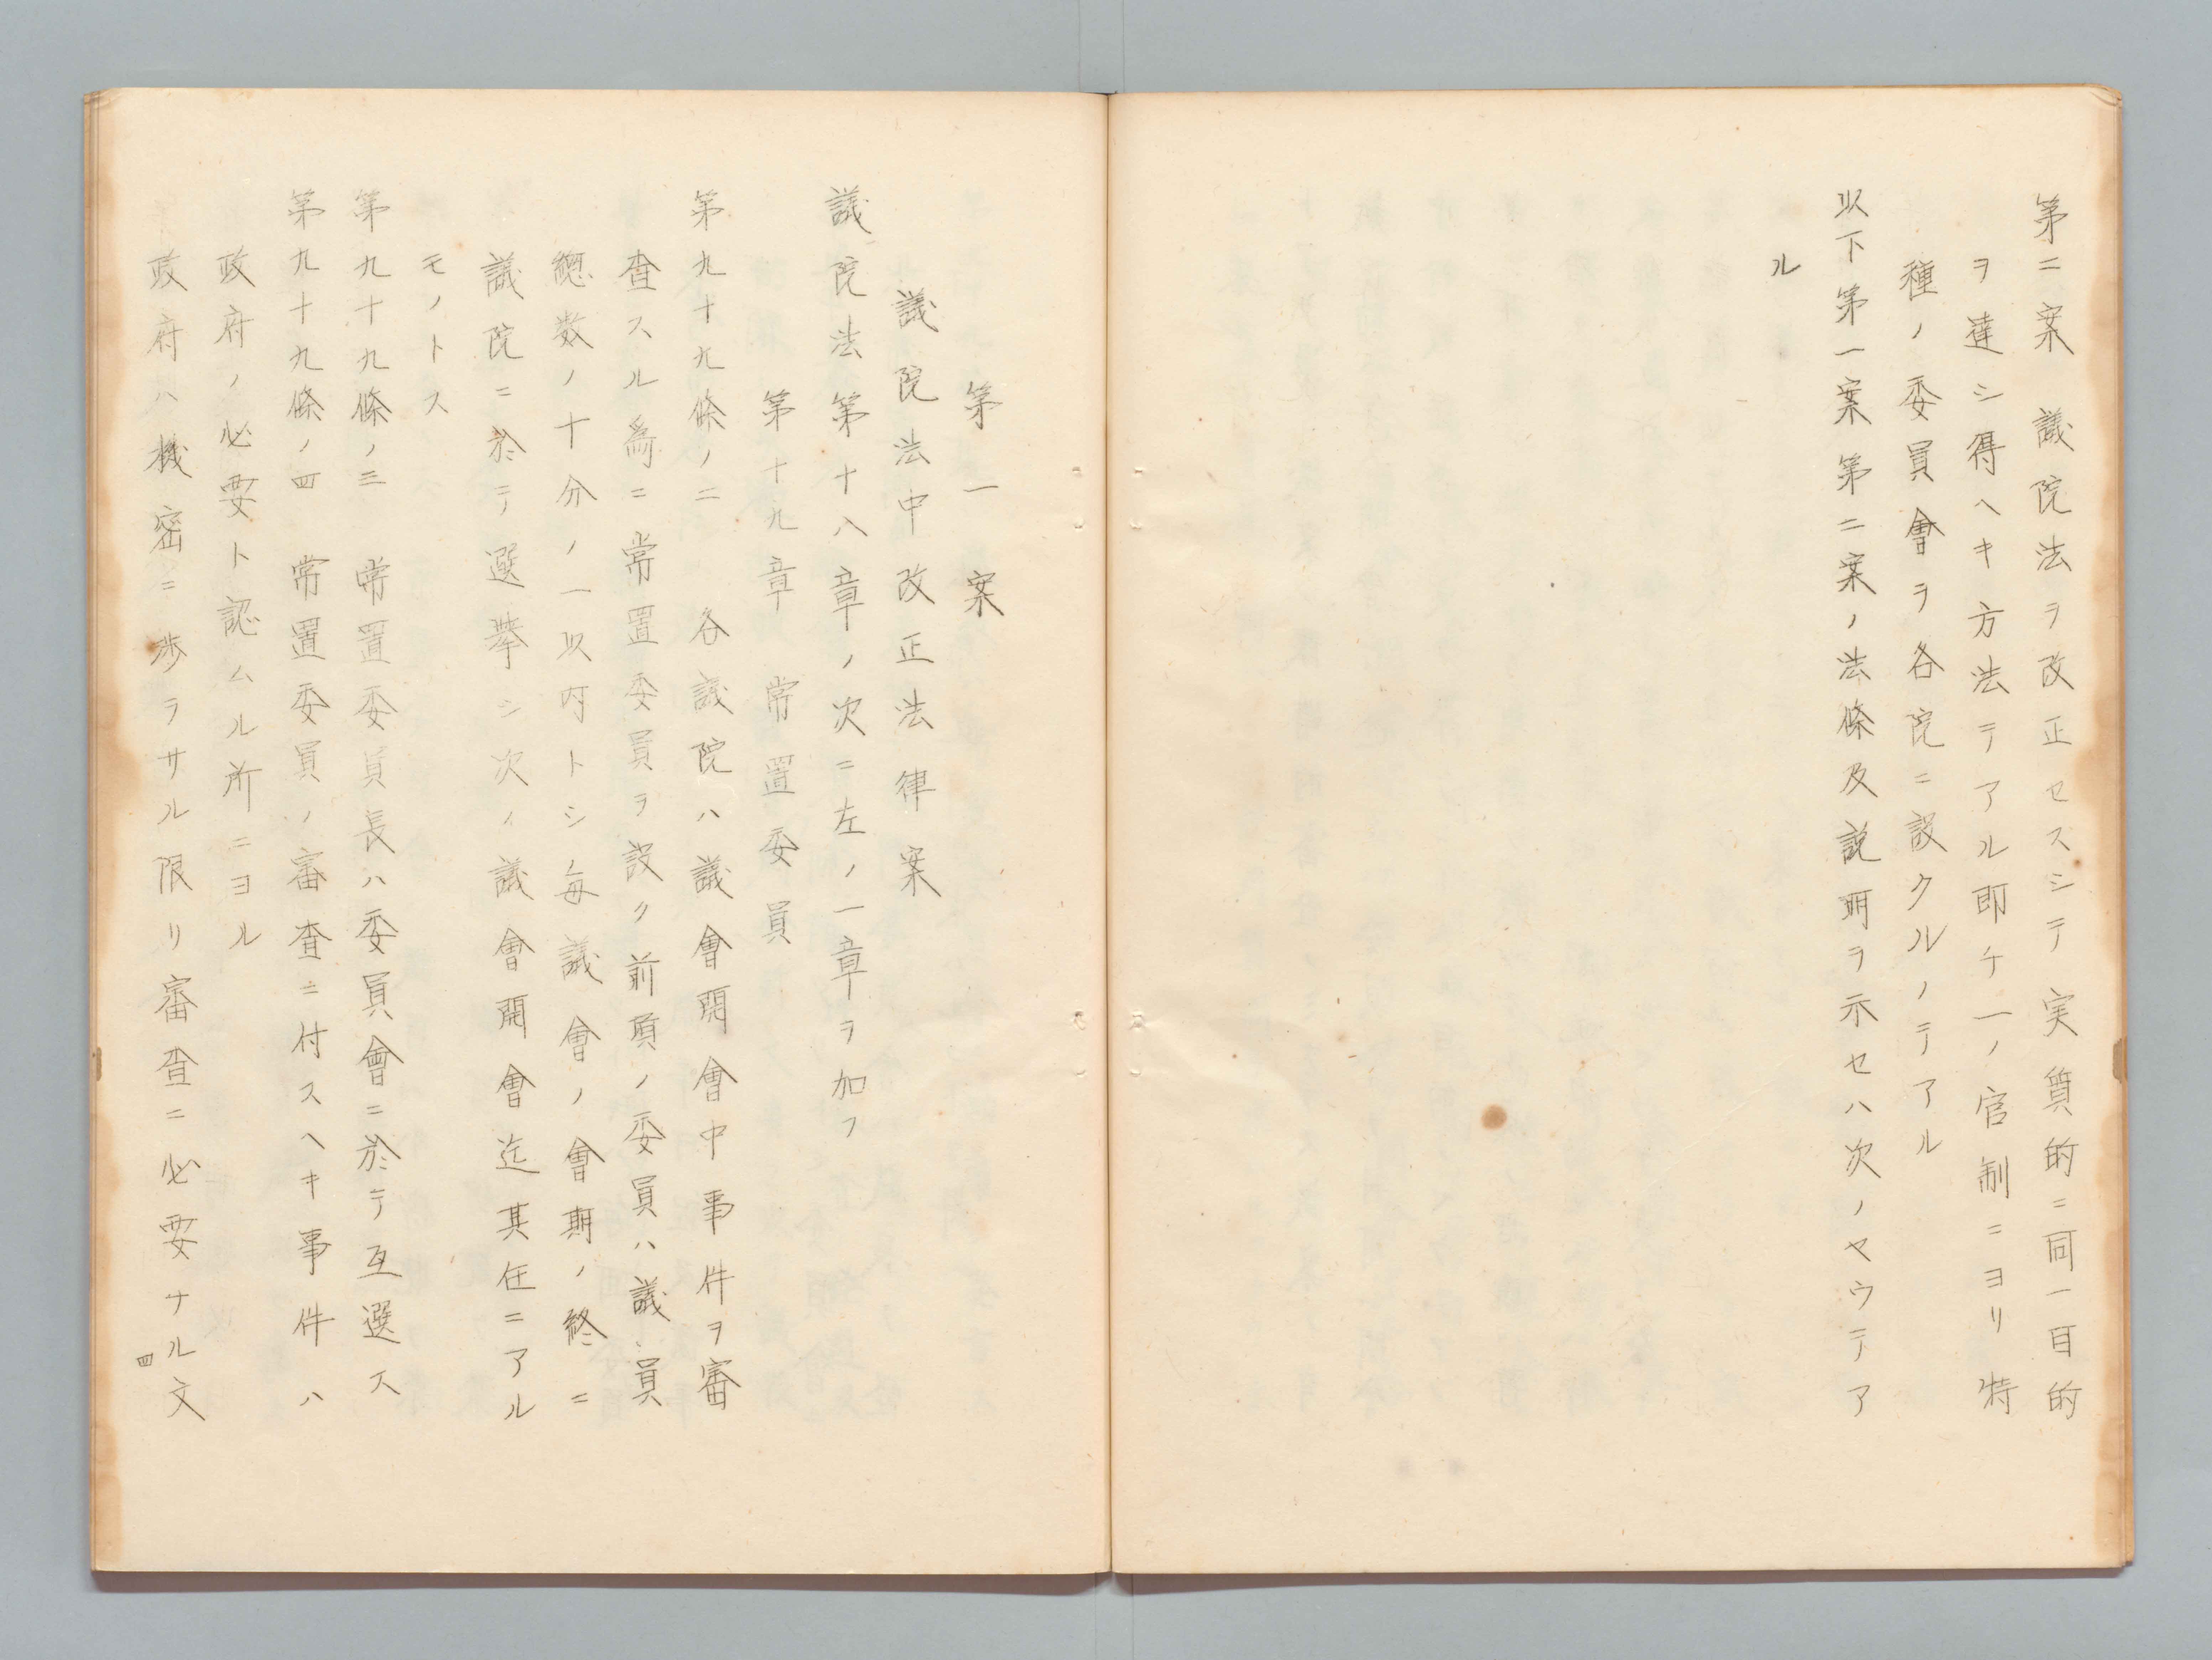 第二案　議院法ヲ改正セスシテ実質的ニ同一目的
ヲ達シ得ヘキ方法テアル即チ一ノ官制ニヨリ特
種ノ委員會ヲ各院ニ設クルノテアル
以下第一案第二案ノ法條及説明ヲ示セハ次ノヤウテア
ル
第一案
議院法中改正法律案
議院法第十八章ノ次ニ左ノ一章ヲ加フ
第十九章　常置委員
第九十九條ノ二　各議院ハ議會開會中事件ヲ審
査スル為ニ常置委員ヲ設ク前項ノ委員ハ議員
總数ノ十分ノ一以内トシ毎議會ノ會期ノ終ニ
議院ニ於テ選挙シ次ノ議會開會迄其任ニアル
モノトス
第九十九條ノ三　常置委員長ハ委員會ニ於テ互選ス
第九十九條ノ四　常置委員ノ審査ニ付スヘキ事件ハ
政府ノ必要ト認ムル所ニヨル
政府ハ機密ニ渉ラサル限リ審査ニ必要ナル文
四